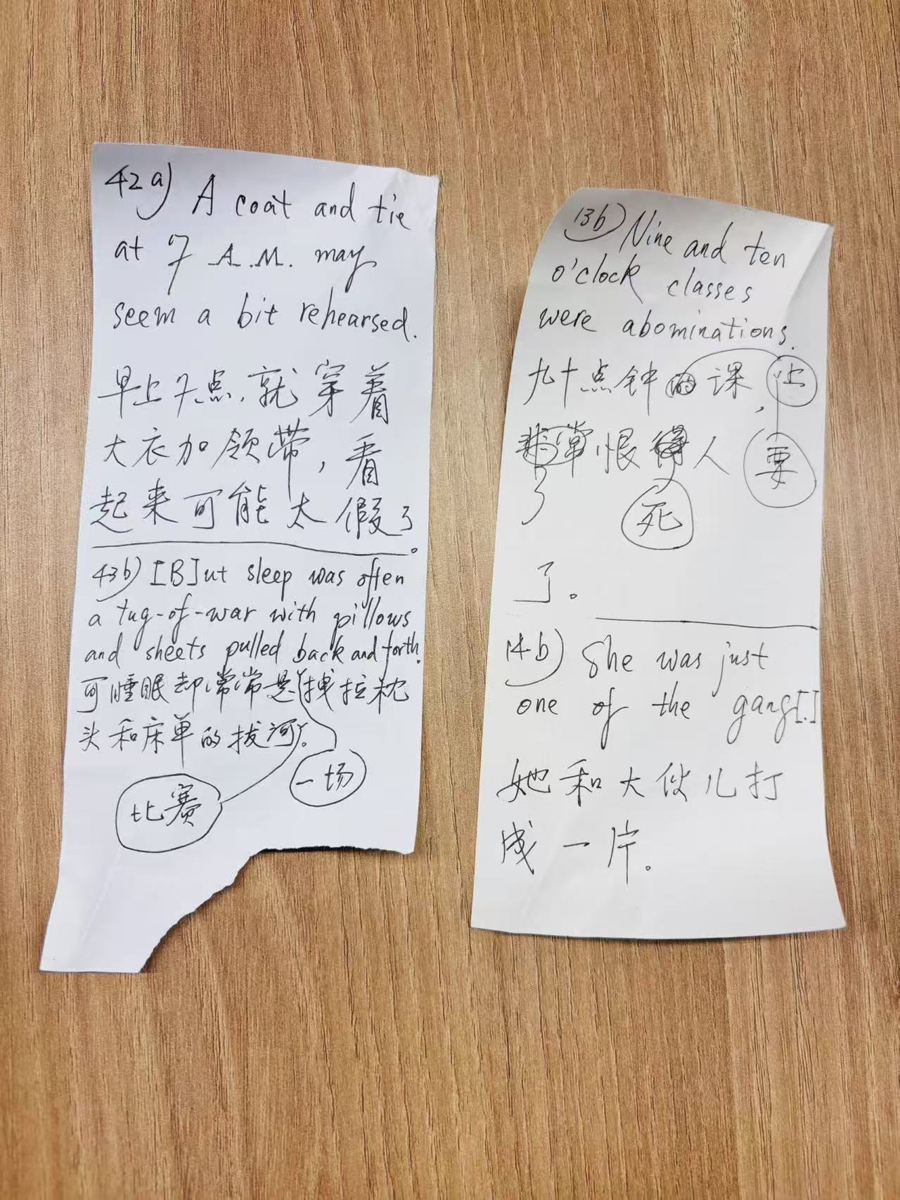 42a) A coat and tie
at 7 A.M. may
seem a bit rehearsed.
早上7点，就穿着
大衣加领带，看
起来可能太假了
。
43b) [B]ut sleep was often
a tug-of-war with pillows
and sheets pulled back and forth.
可睡眠却常常是拽拉枕
头和床单的拔河。
一场
比赛
13b) Nine and ten
o'clock classes
were abominations.
九十点钟的课，上
恨人
要
死
了。
14b) She was just
one of the gang[.]
她和大伙儿打
成一片。